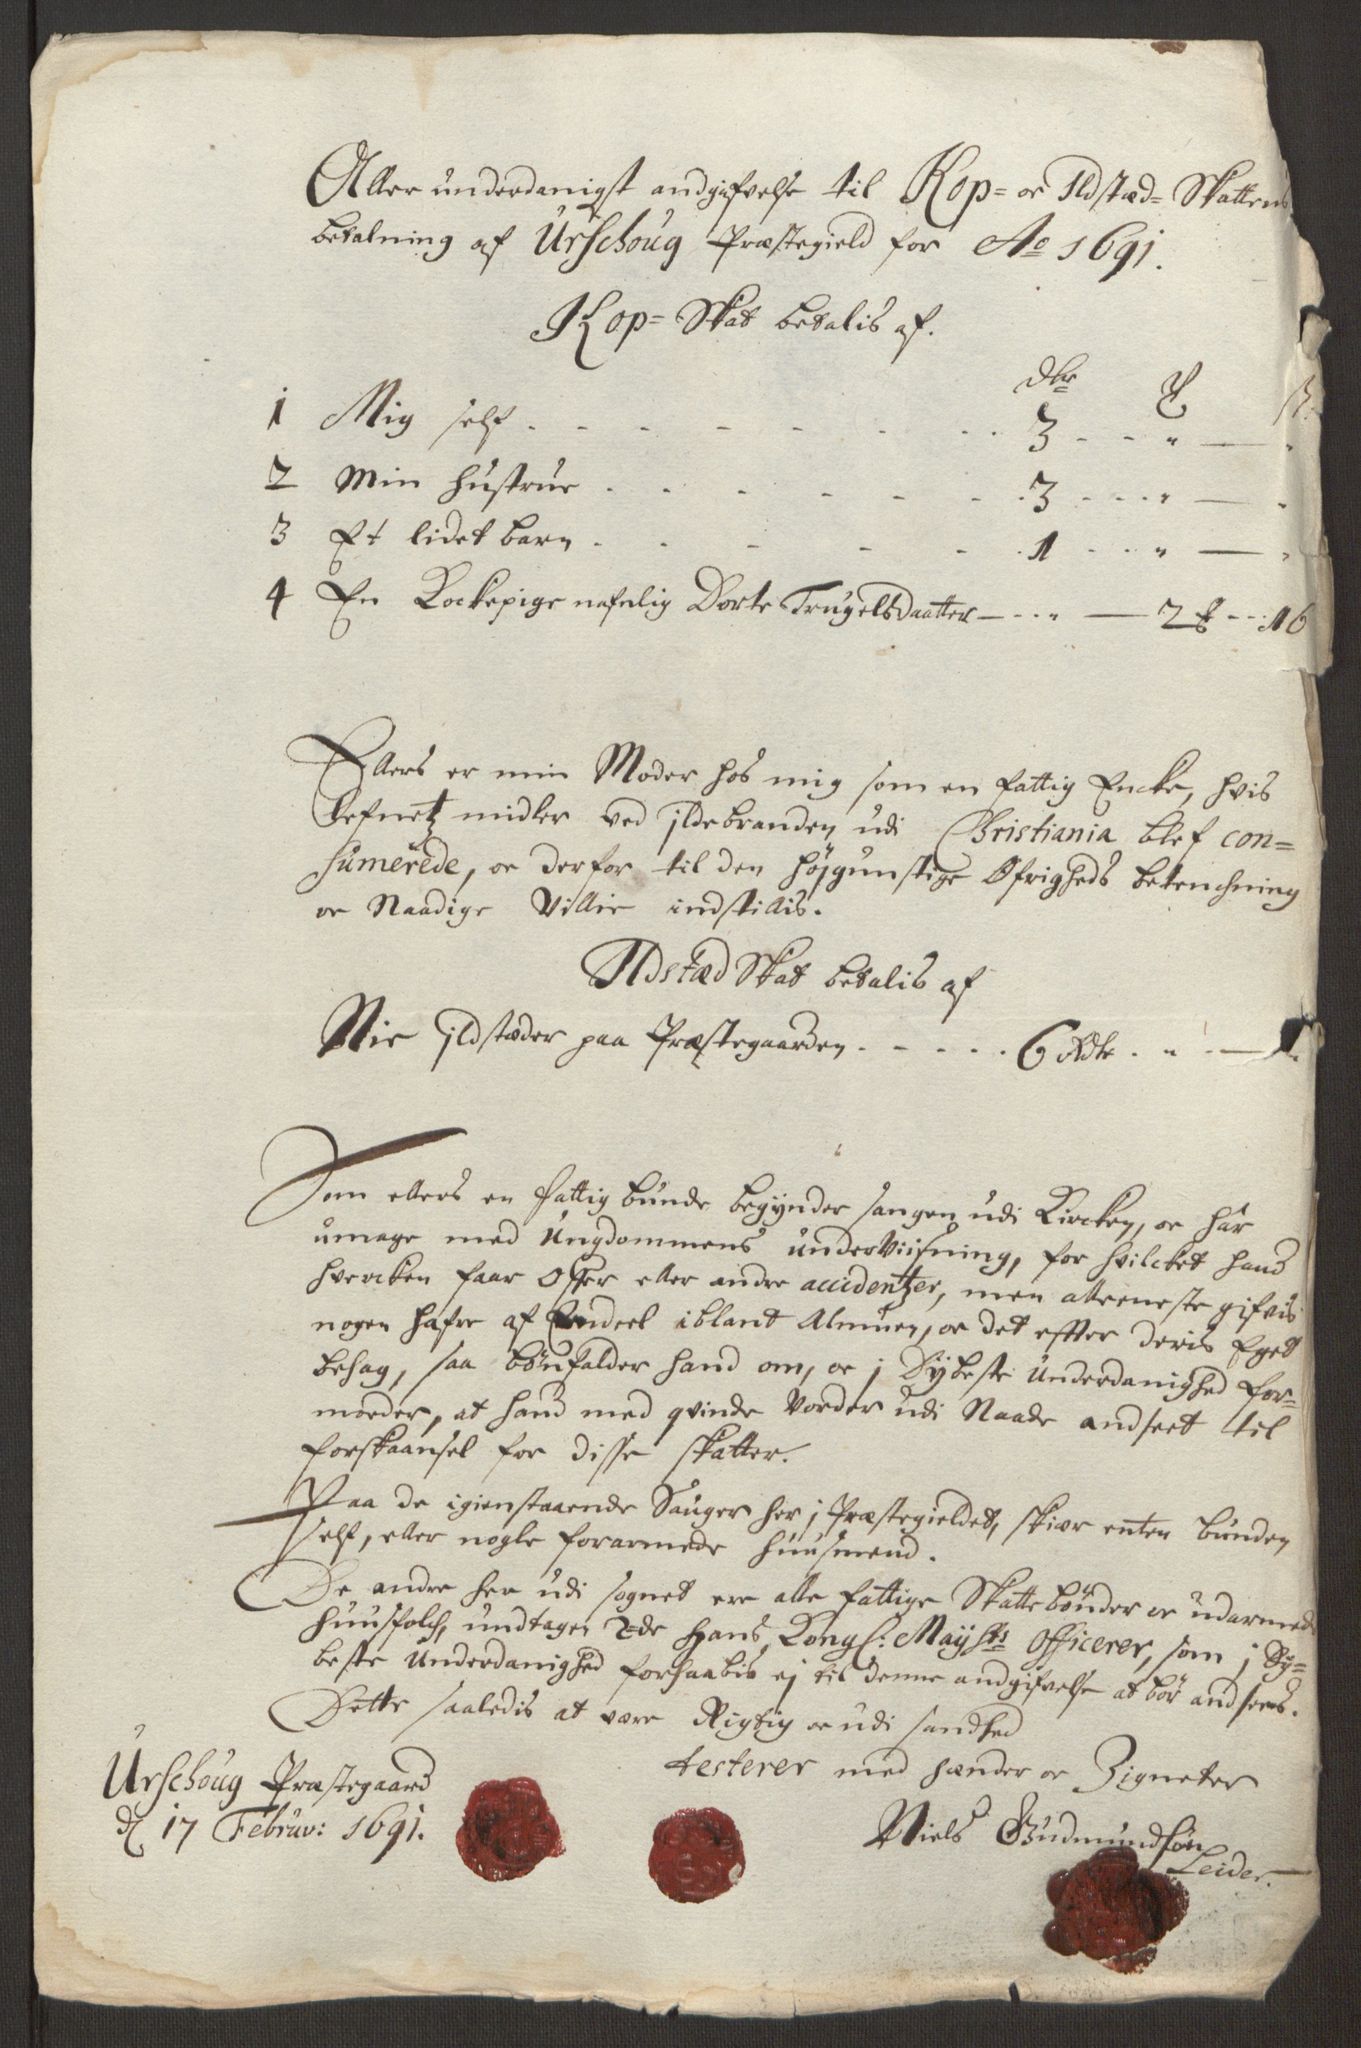 Aller underdanigst andgifvelse til Kop= oc Ildstæd= Skattens
betalning af Urschoug Præstegield for Ao 1691.
Kop= Skat betalis af.
Dlr
1 Mig self - - - - - - - 3 - - „ —
2 Min hustrue - - - - - - 3 - - - „ —
3 Et lidet barn - - - - - 1 - - „ —
4 En Kockepige nafnlig Dorte Trugelsdaatter — - - „ — 2 - - 16
Ellers er min Moder hos mig som en fattig Encke, hvis
lefnetz midler ved jldebranden udi Christiania blef con=
sumerede, oc derfor til den højgunstige Øfrigheds betenchning
oc Naadige Villie indstillis.
Ildstæd Skat betalis af
Nie jldstæder paa Præstegaarden - - - - - 6 Rdlr - „ —
Som ellers en fattig bunde begynder sangen udi Kircken, oc har
umage med Ungdommens underviisning, for hvilcket hand
hvercken faar Offer eller andre accidentzer, men alleneste gifvis
nogen hafre af Endeel iblant Almuen, oc det effter deris Eget
behag, saa bønfalder hand om, oc j dybeste Underdanighed for=
moder, at hand med qvinde vorder udi Naade andseet til
forskaansel for disse skatter.
Paa de igienstaaende Sauger her j Præstegieldet, skiær enten bunden
self, eller nogle forarmede huusmend.
De andre her udi sognet ere alle fattige Skattebønder oc udarmede
huusfolch, undtagen Hans Kongl: Mayhts Officerer, som j dy=
beste Underdanighed forhaabis ej til denne andgifvelse at bør andsees.
Dette saaledis at være Rigtig oc udi sandhed
testerer med hænder oc Zigneter
Urschoug Præstegaard
d 17 Februv: 1691.
Niels Gudmundsøn
Leider.